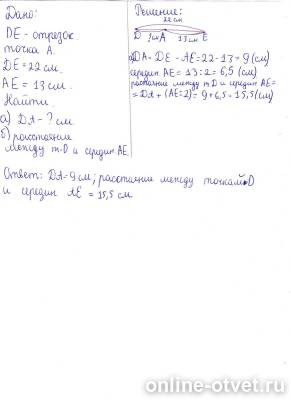 Дано:
DE - отрезок
точка A.
DE = 22 см.
AE = 13 см.
Найти
а) DA - ? см.
б) расстояние
между т. D и середин AE.
Решение:
22 см
D 9см A 13 см E
а) DA = DE - AE = 22 - 13 = 9 (см)
середин. AE = 13 : 2 = 6,5 (см)
растояние между т D и середин AE =
= DA + (AE : 2) = 9 + 6,5 = 15,5 (см)
Ответ: DA = 9 см; расстояние между точками D
и середин AE = 15,5 см.
online-otvet.ru